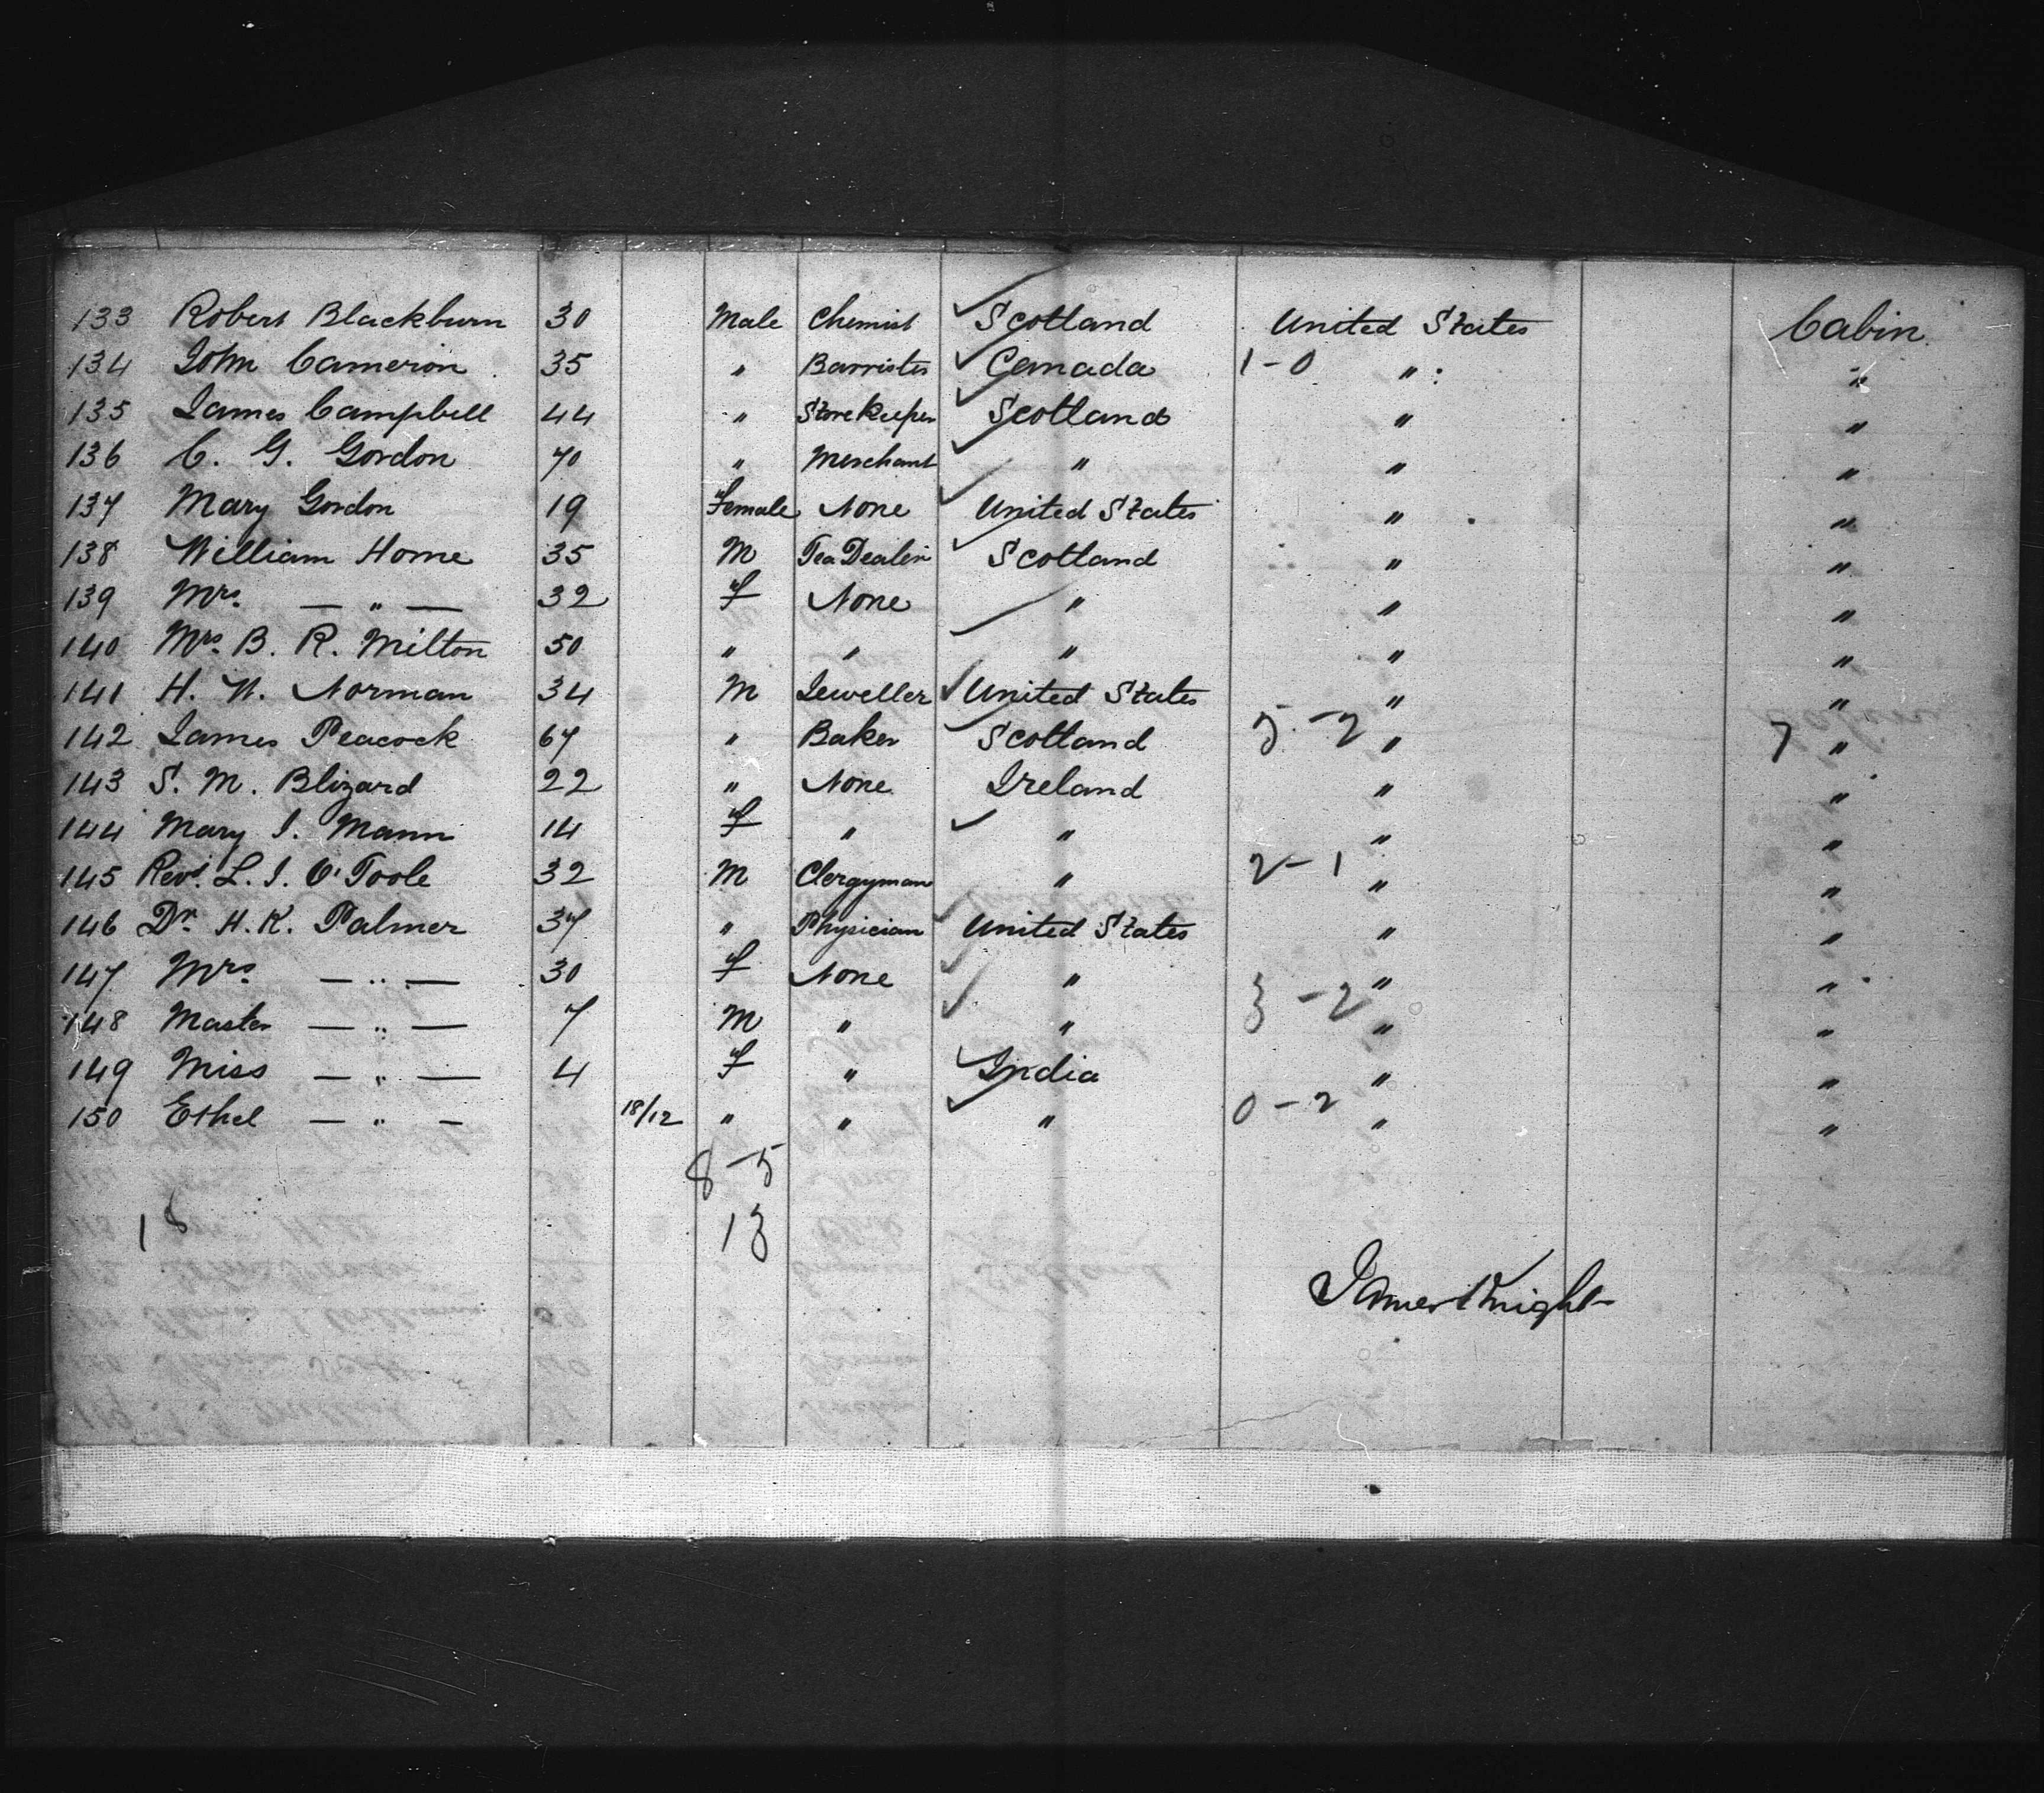 133 Robert Blackburn 30 Male Chemist Scotland United States Cabin
134 John Cameron 35 " Barrister Canada 1-0 " "
135 James Campbell 44 " Storekeeper Scotland " "
136 C. G. Gordon 70 " Merchant " " "
137 Mary Gordon 19 Female None United States " "
138 William Home 35 M Tea Dealer Scotland " "
139 Mrs. — " — 32 f None " " "
140 Mrs. B. R. Milton 50 " " " " "
141 H. W. Norman 34 M Jeweller United States " "
142 James Peacock 67 " Baker Scotland 5-2 " 7 "
143 S. M. Blizard 22 " None Ireland " "
144 Mary J. Mann 14 f " " " "
145 Revd. L. J. O'Toole 32 M Clergyman " 2-1 " "
146 Dr. H. K. Palmer 37 " Physician United States " "
147 Mrs. — " — 30 f None " " "
148 Master — " — 7 M " " 3-2 " "
149 Miss — " — 4 f " India " "
150 Ethel — " — 18/12 " " " 0-2 " "
8-5
18 13
James Knight